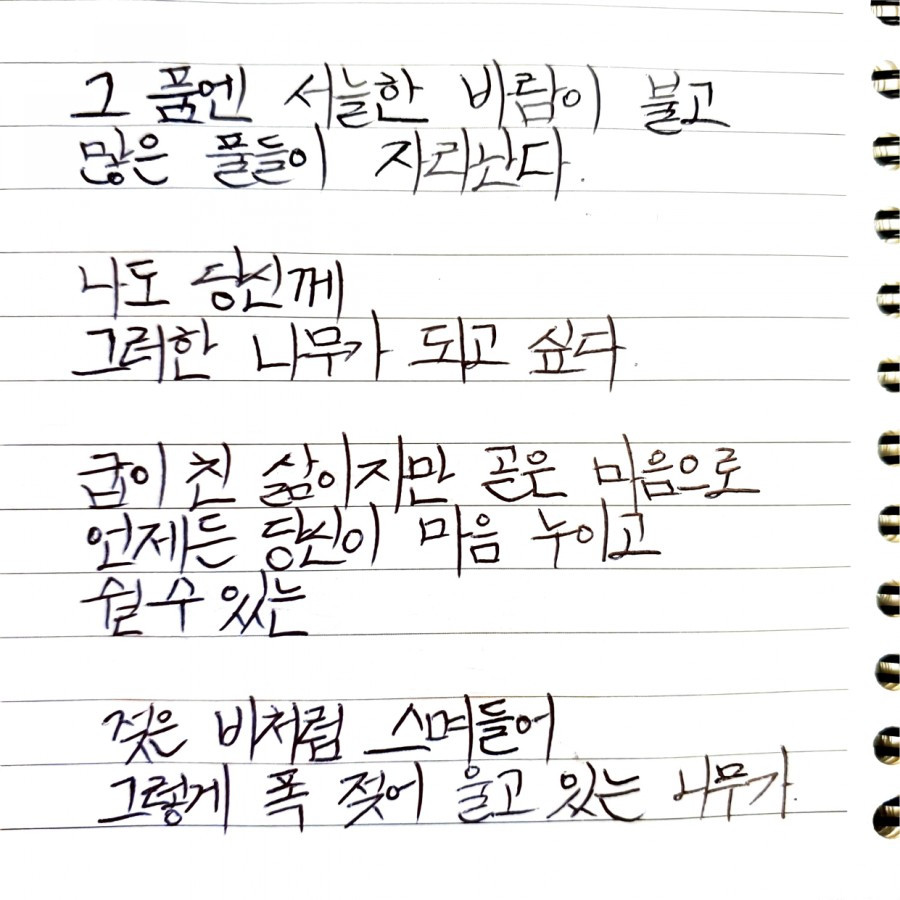 그 품엔 서늘한 바람이 불고
많은 풀들이 자라난다.
나도 당신께
그러한 나무가 되고 싶다.
굽이 친 삶이지만 곧은 마음으로
언제든 당신이 마음 누이고
쉴 수 있는
젖은 비처럼 스며들어
그렇게 폭 젖어 울고 있는 나무가.